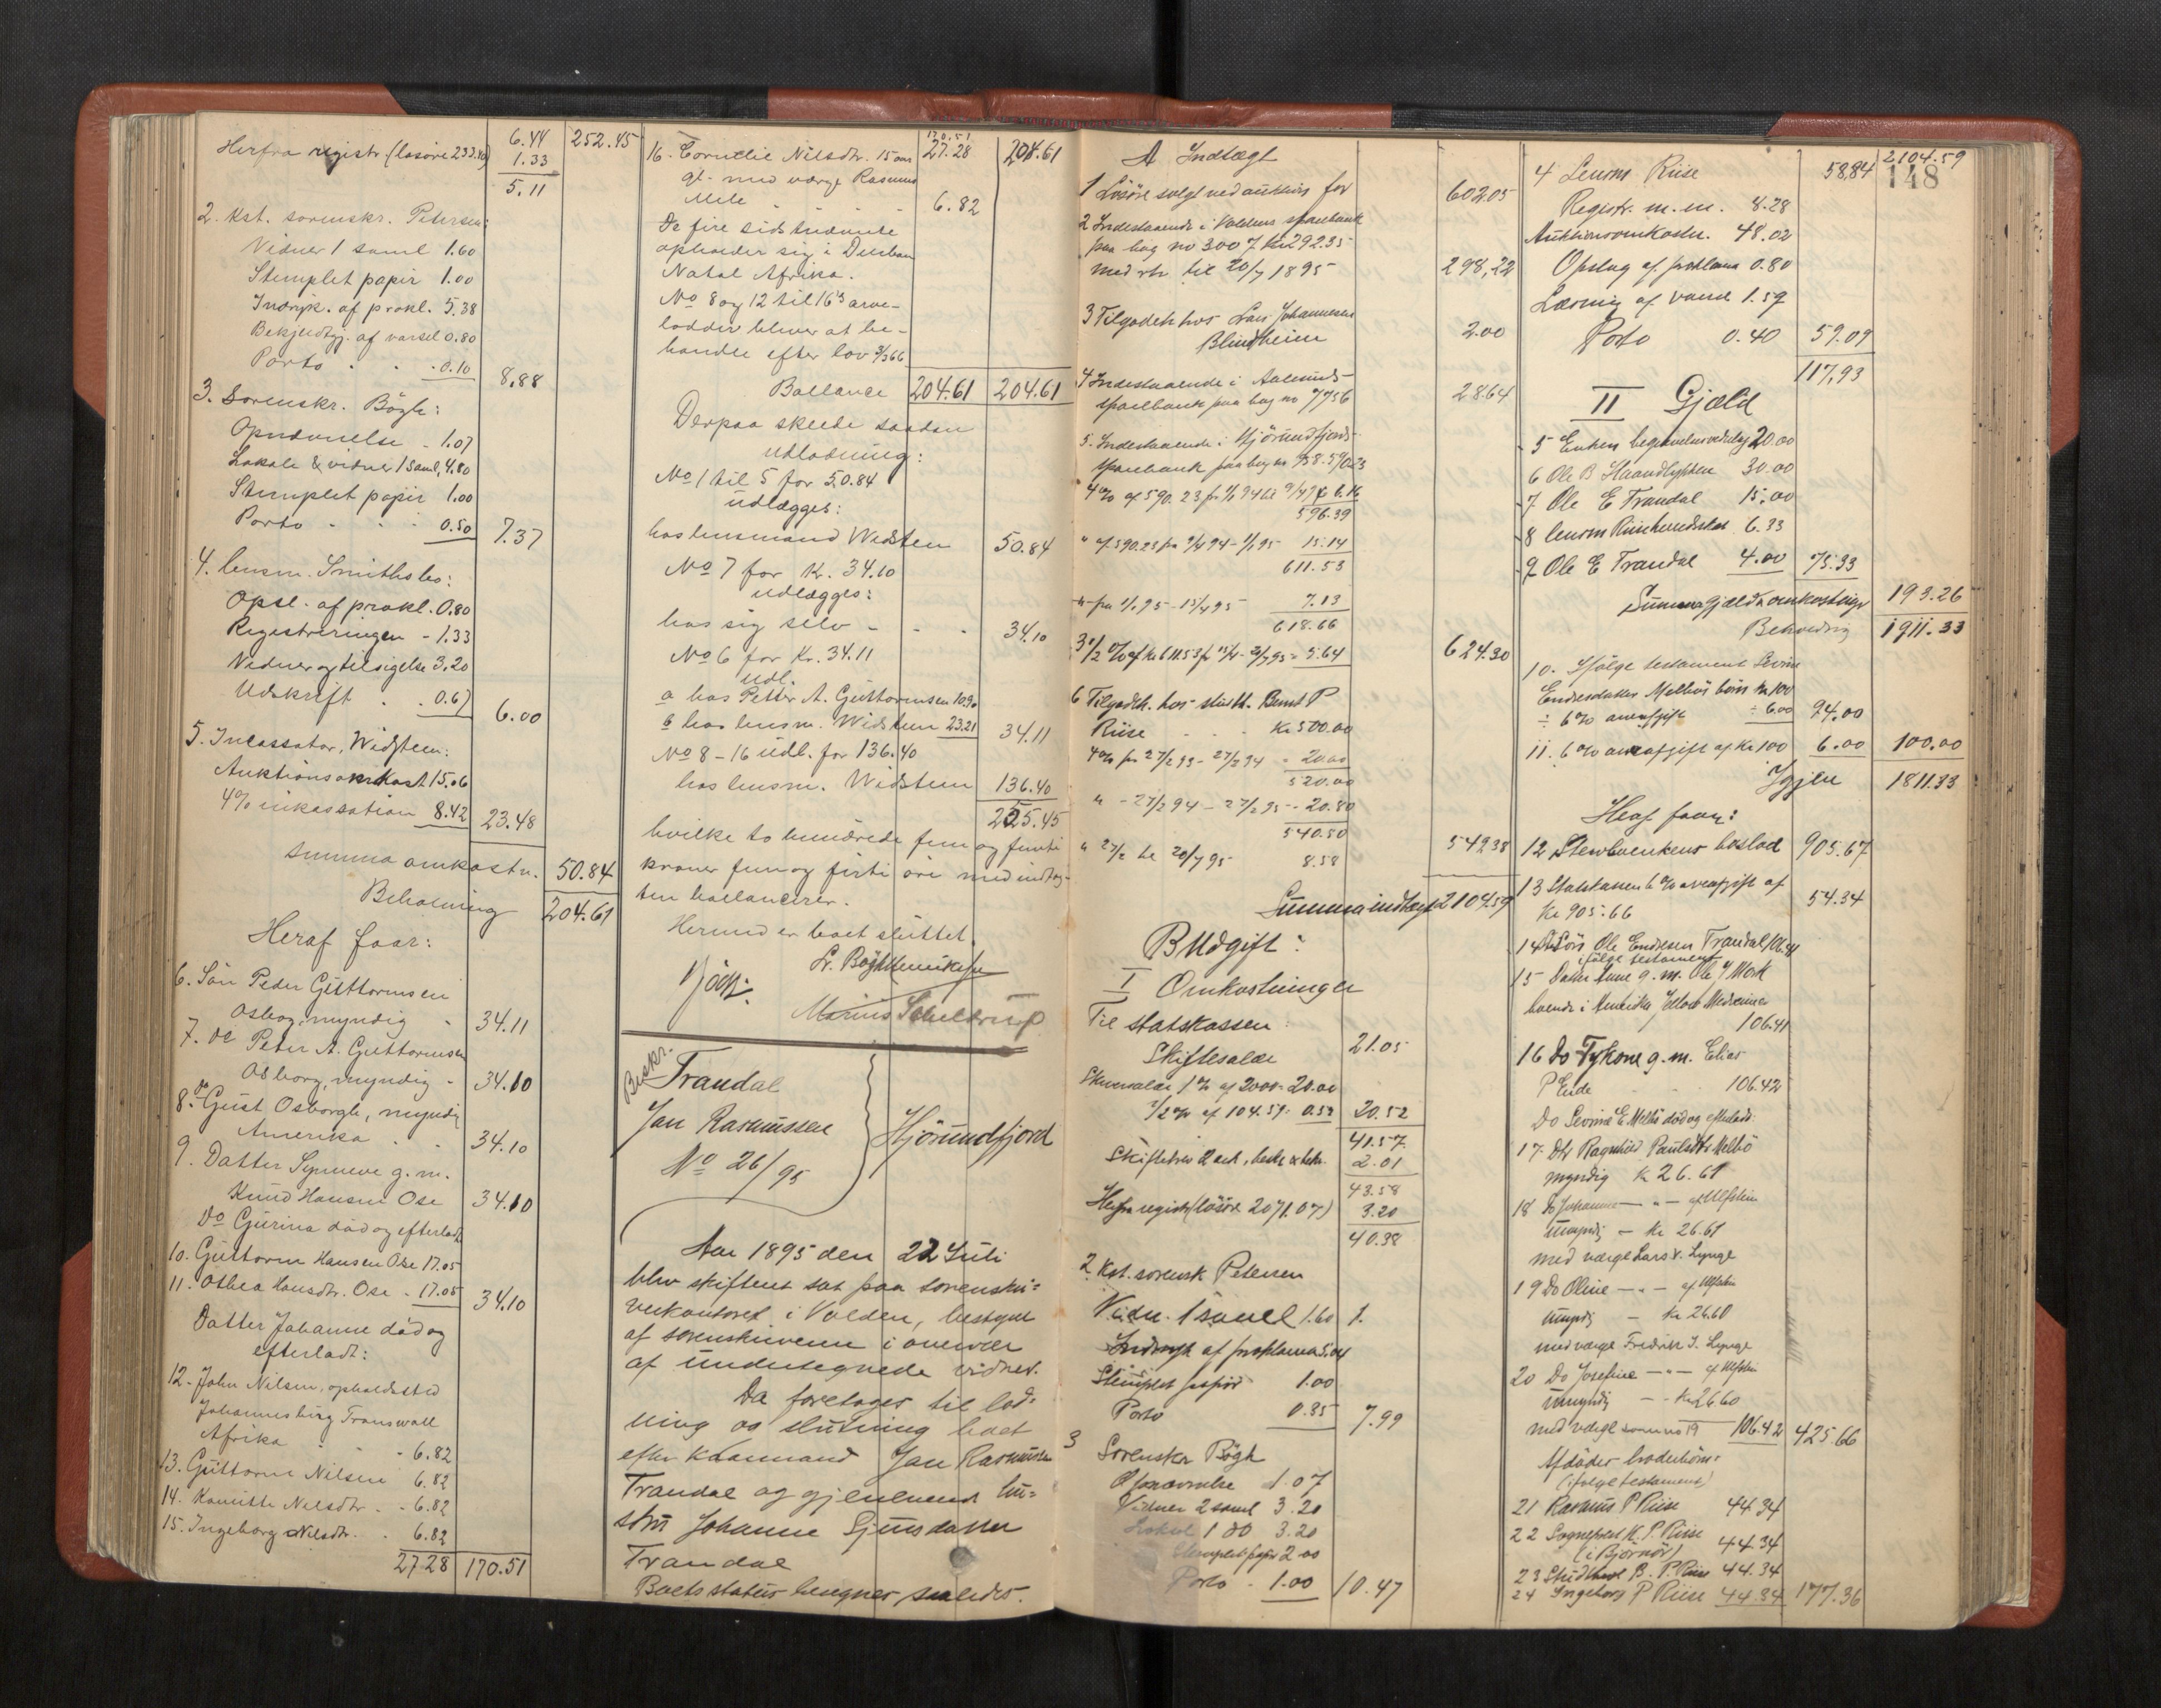 6.44 252.45
Herfra registr (løsöre 233.40) 1.33
5.11
2. Kst. sorenskr. Petersen:
Vidner 1 saml 1.60
Stemplet papir 1.00
Indryk. af prokl. 5.38
Bekjendtgj. af varsel 0.80
Porto . . . 0.10 8.88
3. Sorenskr. Bögh:
Opnævnelse - 1.07
Lokale & vidner 1 saml, 4.80
Stemplet papir 1.00
Porto - - - 0.50 7.37
4. lensm. Smiths bo:
Opsl. af prokl. 0.80
Registreringen - 1.33
Vidner og tilsigelse 3.20
Udskrift . . 0.67 6.00
5. Incassator, Widsteen:
Auktionsomkost 15.06
4% inkassation 8.42 23.48
Summa omkostn. 50.84
Beholdning 204.61
Heraf faar:
6. Sön Peder Guttormsen
Osborg, myndig - 34.11
7. do Peter A. Guttormsen
Osborg, myndig - 34.10
8. do Gust. Osborgh, myndig
Amerika . . 34.10
9. Datter Synneve g. m.
Knud Hansen Ose 34.10
Do Gurina död og efterladt
10. Guttorm Hansen Ose 17.05
11. Othea Hansdtr. Ose - 17.05 34.10
Datter Johanne död og
efterladt:
12. John Nilsen, opholdssted
Johannesburg Transwall
Afrika - 6.82
13. Guttorm Nilsen 6.82
14. Nilsdtr. - 6.82
15. Ingeborg Nilsdtr. . 6.82
27.28 170.51
170.51
16. Cornelie Nilsdtr. 15 aar 27.28 204.61
gl. med værge Rasmus
Mele - - - 6.82
De fire sidstnævnte
opholder sig i Durban
Natal Afrika.
No 8 og 12 til 16's arve-
lodder bliver at be-
handle efter lov 3/3 66
Ballance 204.61 204.61
Derpaa skede saadan
udlodning:
No 1 til 5 for 50.84
udlægges:
hos lensmand Widsteen 50.84
No 7 for Kr. 34.10
udlægges:
hos sig selv - - - 34.10
No 6 for Kr. 34.11
udl.
a hos Petter A. Guttormsen 10.90
b hos lensm. Widsteen 23.21 34.11
No 8 - 16 udl. for 136.40
hos lensm. Widsteen 136.40
255.45
hvilke to hundrede fem og femti
kroner fem og firti öre med indtæg-
ten ballancerer.
Hermed er boet sluttet.
Marius Scheldrup
Beskr.
Trandal
Jan Rasmussen
No 26/95
Hjörundfjord
Aar 1895 den 22 Juli
blev skifteret sat paa sorenskri-
verkontoret i Volden, bestyret
af sorenskriveren i overvær
af undertegnede vidner.
Da foretages til lod-
ning og slutning boet
efter kaarmand Jan Rasmussen
Trandal og gjenlevende hu-
stru Johanne Sjursdatter
Trandal
Boets status beregnes saaledes.
A Indtægt
1 Lösöre solgt ved auktion for 602.05
2 Indestaaende i Voldens sparebank
paa bog no 3007 Kr 292.35
med rtr til 20/7 1895 298,22
3 Tilgodeh hos Lars Johannesen
Blindheim 2.00
4 Indestaaende i Aalesunds-
sparebank paa bog no 7756 28.64
5. Indestaaende i Hjörundfjords-
sparebank paa bog no 590.23
6.16
596.39
15.14
611.53
7.13
618.66
5.64 624.30
6 Tilgodeh. hos Bernt P
Riise - - - Kr 500.00
4% fra 27/2 93 - 27/2 94 - 20.00
520.00
" - 27/2 94 - 27/2 95 - 20.80
540.80
" 27/2 til 20/7 95 - 8.58 542.38
Summa indtægt 2104.59
B Udgift:
I Omkostninger
Til statskassen:
Skiftesalær 21.05
1% af 2000 - 20.00
1/2 % af 104.59 - 0.52 20.52
41.57
2.01
43.58
Herfra registr (lösöre 2071.07) 3.20
40.38
2. Kst. sorensk Petersen
Vidn. 1 saml 1.60 1.
Indryk af proklama 5.04
Stemplet papir 1.00
Porto 0.35 7.99
3 Sorenskr Bögh
Opnævnelse 1.07
Vidner 2 saml 3.20
Lokal 1 do 3.20
Stemplet papir 2.00
Porto - 1.00 10.47
148
4 Lensm Riise 58,84 2104.59
Registr. m. m. 8.28
Auktionsomkostn. 48.02
Opslag af proklama 0.80
Læsning af varsel 1.59
Porto 0.40 59.09
117,93
II Gjæld
5 Enken begravelsesudlæg 20.00
6 Ole B Haandlykken 30.00
7 Ole E Trandal 15.00
8 lensm Riise 6.33
9 Ole E Trandal 4.00 75.33
Summa gjæld & omkostninger 193.26
Beholdning 1911.33
10. Ifölge testament Sevrine
Endresdatter Melbös börn Kr 100
÷ 6% arveafgift ÷ 6.00 94.00
11. 6% arveafgift af Kr 100 6.00 100.00
Igjen 1811.33
Heraf faar:
12 Stervboenkens boslod 905.67
13 Statskassen 6% arveafgift af
Kr 905.66 54.34
14 Ole Endresen Trandal 106.41
ifölge testament
15 Datter Anne g. m. Ole J Mork
boende i Amerika
106.41
16 Do g. m. Elias
P - - 106.42
Do Sevrine E. Melbö död og efterladt:
17. Dtr Ragnhild Paulsdtr Melbö
myndig Kr 26.61
18 Do Johanne - " -
umyndig - Kr 26.61
med værge Lars V. Lynge
19 Do Oline - " -
umyndig - Kr 26.60
med værge Fredrik J. Lynge
20 Do Josefine - " -
umyndig - - Kr 26.60
med værge som no 19 106.42 425.66
Afdödes broderbörn:
(ifölge testament)
21 Rasmus P Riise 44.34
22 Sogneprest K. P. Riise
(i Björnör) 44.34
23 B. P. Riise 44.34
24 Ingeborg P Riise 44.34 177.36